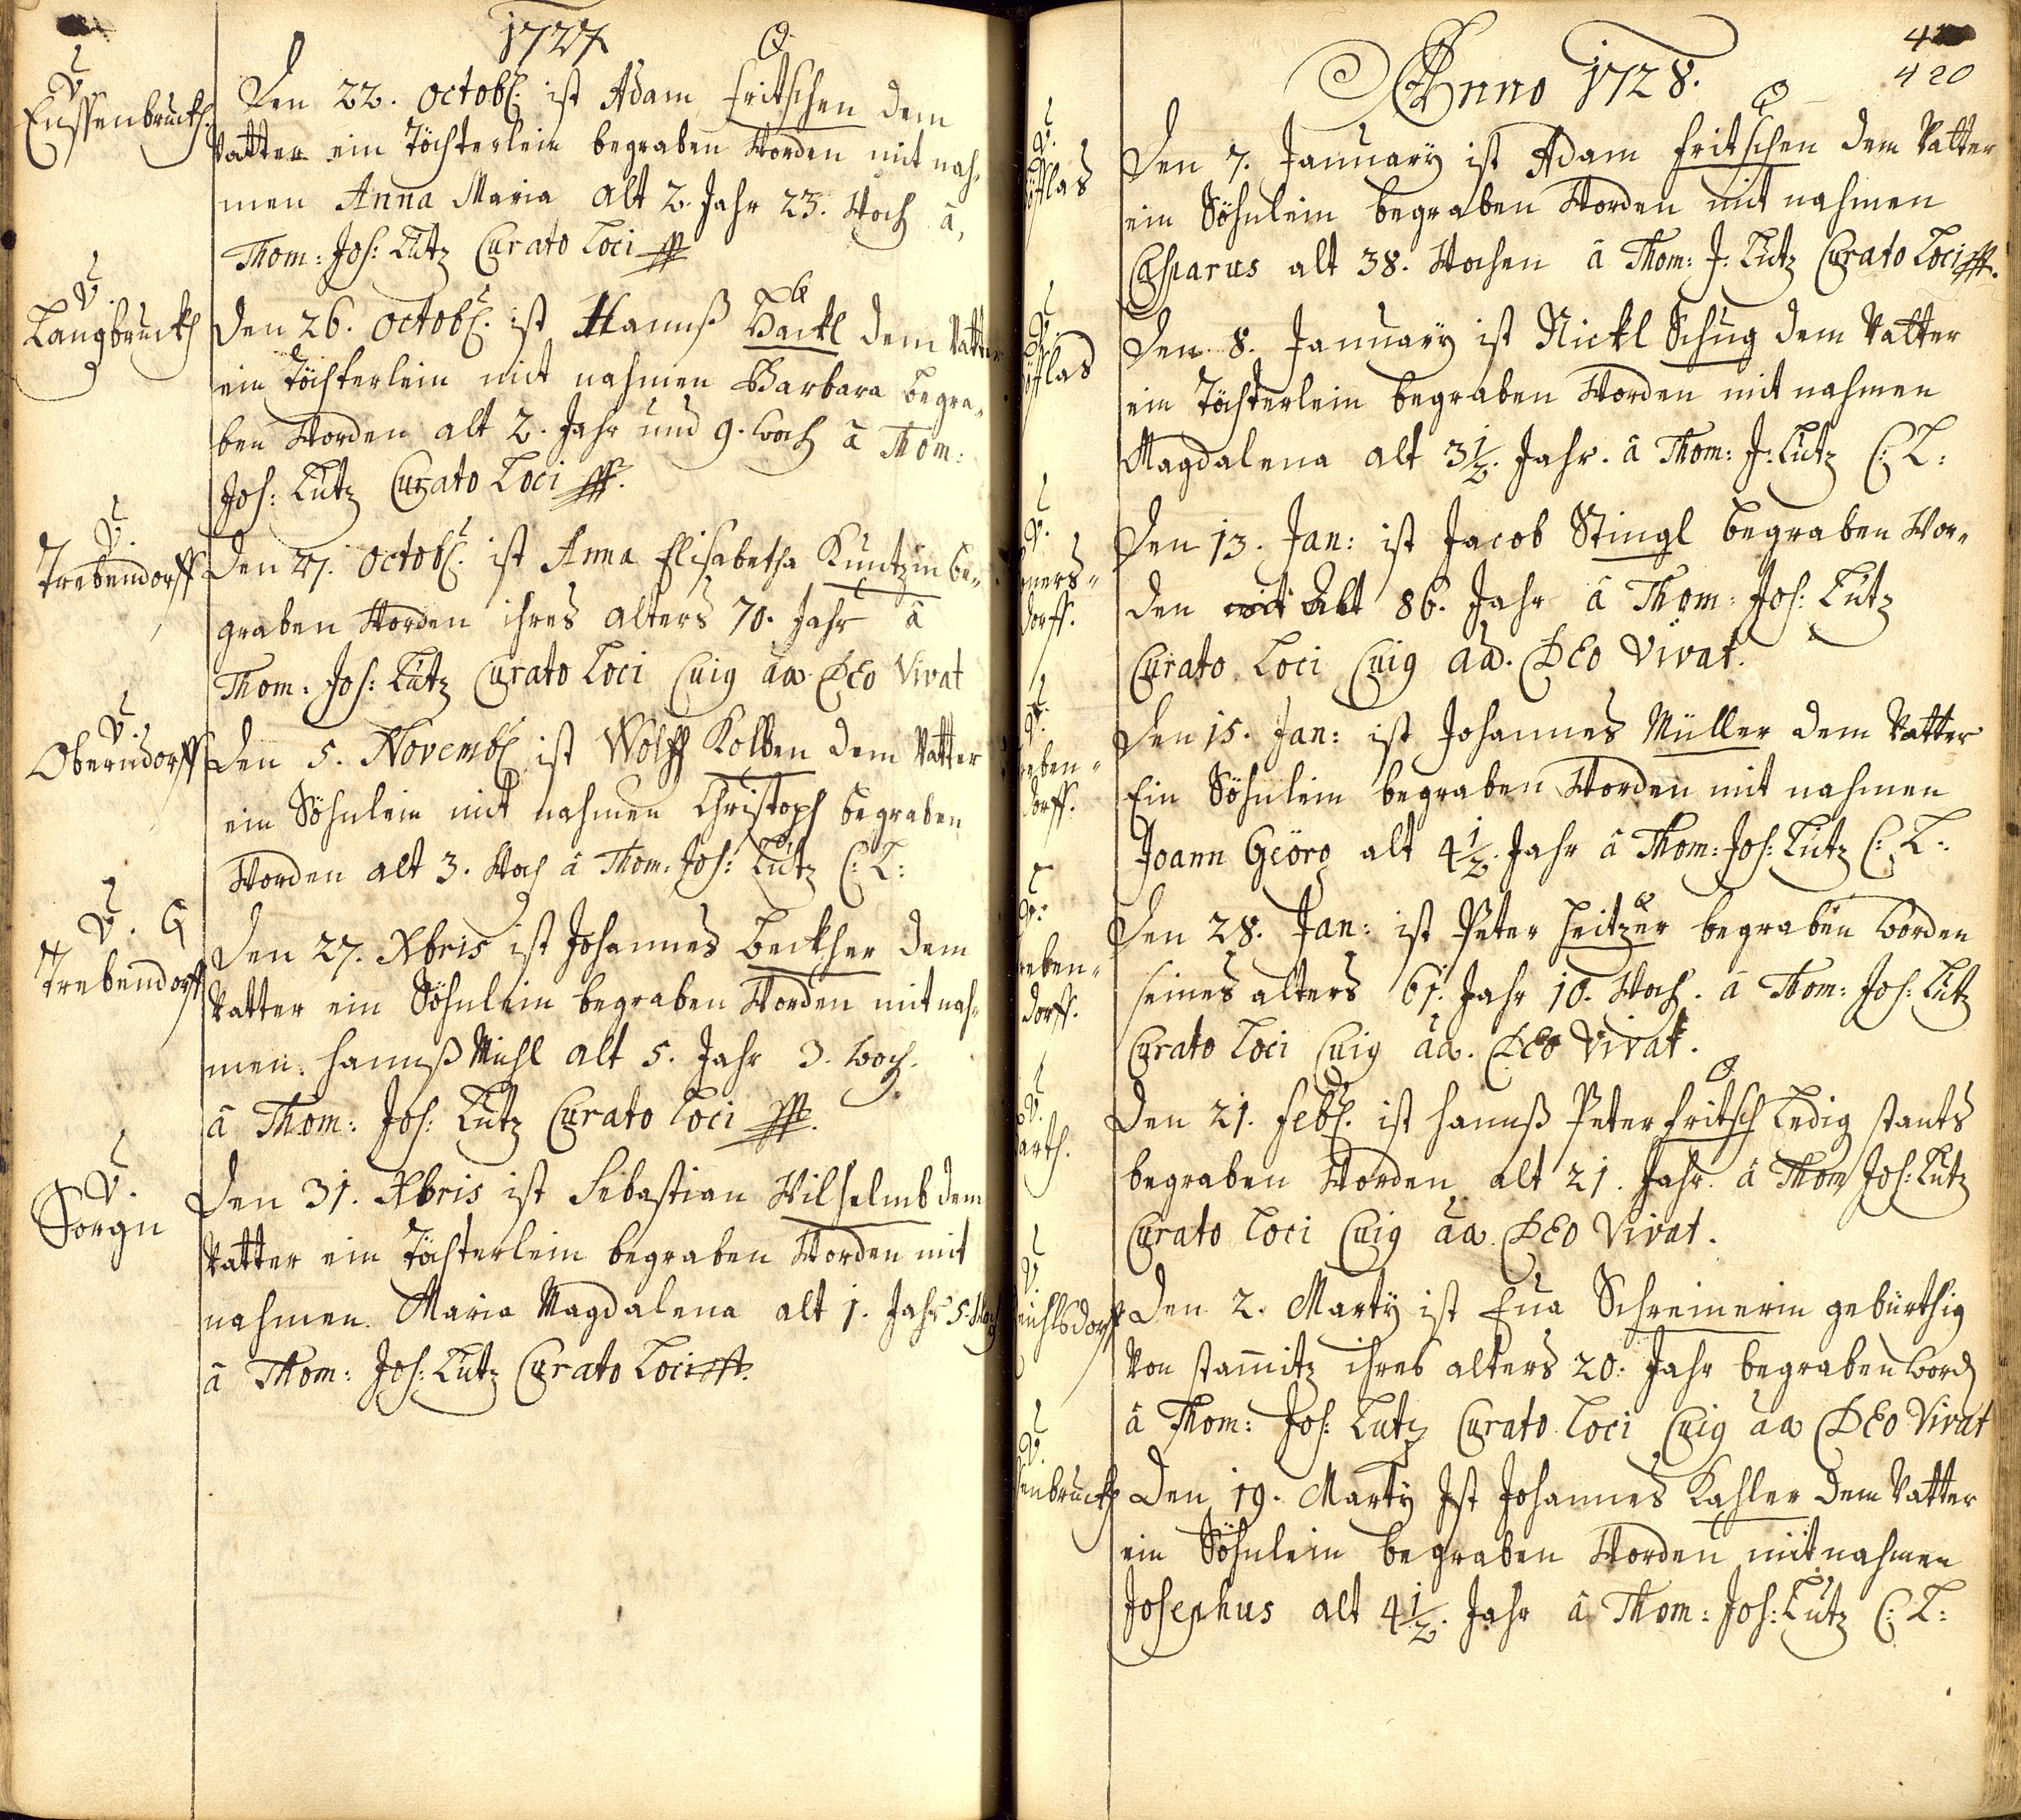 1727
V.
Eussenbruckh.
Den 22. Octob. ist Adam Fritschen dem
Vatter ein Töchterlein begraben worden mit nah„
men Anna Maria alt 2. Jahr 23. Woch â,
Thom: Joh: Lutz Curato Loci
V.
Langbruckh
Den 26. Octob. ist Hannß Hackl dem Vatter
ein Töchterlein mit nahmen Barbara begra„
ben worden alt 2. Jahr und 9. woch â Thom:
Joh: Lutz Curato Loci
V.
Trebendorff
Den 27. Octob. ist Anna Elisabetha Kuntzin be„
graben worden ihres alters 70. Jahr â
Thom: Joh: Lutz Curato Loci Cuig aa. DEo Vivat
V.
Oberndorff
Den 5. Novemb. ist Wolff Kolben dem Vatter
ein Söhnlein mit nahmen Christoph begraben
worden alt 3. Woch â Thom: Joh: Lutz C: L:
V.
Trebendorff
Den 27. Xbris ist Johannes Beckher dem
Vatter ein Söhnlein begraben worden mit nah„
men. Hannß Michl alt 5. Jahr 3. woch.
â Thom: Joh: Lutz Curato Loci
V.
Sorgn
Den 31. Xbris ist Sebastian Wilhelmb dem
Vatter ein Töchterlein begraben worden mit
nahmen Maria Magdalena alt 1. Jahr 5. Woch
â Thom: Joh: Lutz Curato Loci
420
Anno 1728.
V.
Den 7. January ist Adam Fritschen dem Vatter
ein Söhnlein begraben worden mit nahmen
Casparus alt 38. Wochen â Thom: J: Lutz Curato Loci
V.
Den 8. January ist Nickl Schug dem Vatter
ein Töchterlein begraben worden mit nahmen
Magdalena alt 3 1/2. Jahr. â Thom: J: Lutz C: L:
V.
dorff.
Den 13. Jan: ist Jacob Stingl begraben wor„
den mit Alt 86. Jahr â Thom: Joh: Lutz
Curato Loci Cuig aa. DEo Vivat.
reben„
dorff.
Den 15. Jan: ist Johannes Müller dem Vatter
Ein Söhnlein begraben worden mit nahmen
Joann Geörg alt 4 1/2. Jahr â Thom: Joh: Lutz C: L:
reben„
dorff.
Den 28. Jan: ist Peter Heitzer begraben worden
seines alters 61. Jahr 10. Woch. â Thom: Joh: Lutz
Curato Loci Cuig aa. DEo Vivat.
V.
arth.
Den 21. Feb. ist Hannß Peter Fritsch Ledig stants
begraben worden alt 21. Jahr. â Thom Joh: Lutz
Curato Loci Cuig aa. DEo Vivat.
V.
Den 2. Marty ist Eua Schreinerin gebürthig
Von stamitz ihres alters 20. Jahr begraben word
â Thom: Joh: Lutz Curato Loci Cuig aa DEo Vivat
V.
enbruckh
Den 19. Marty Ist Johannes Kahler dem Vatter
ein Söhnlein begraben worden mit nahmen
Josephus alt 4 1/2. Jahr â Thom: Joh: Lutz C: L: